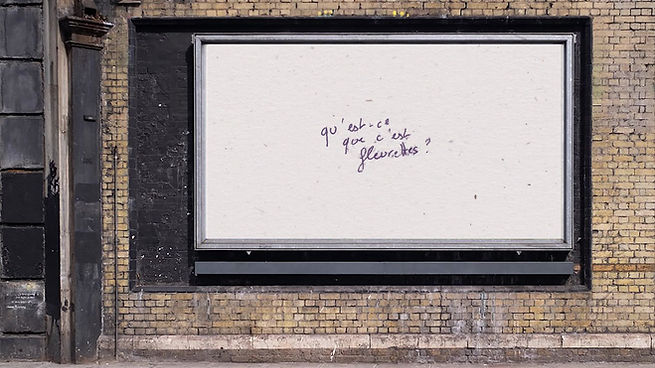 qu'est-ce
que c'est
fleurettes?